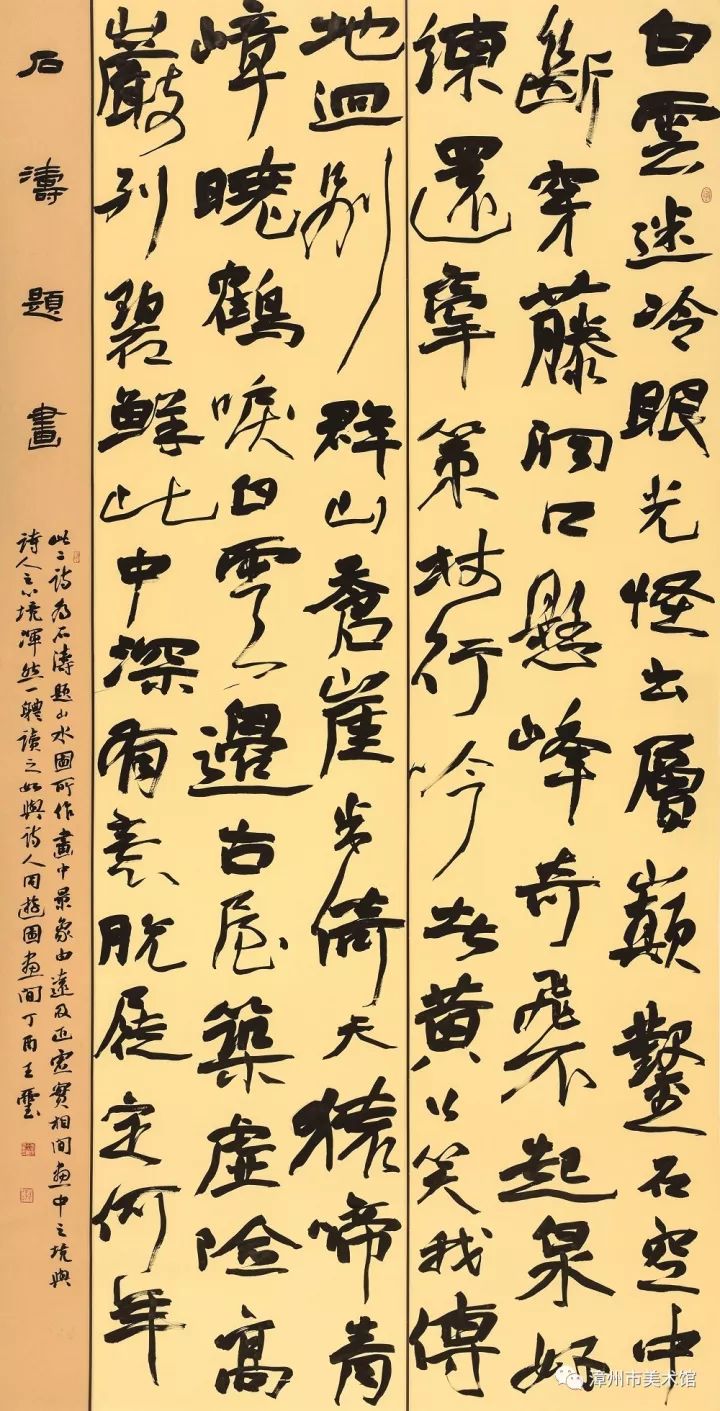 白雲迷冷眼光怪出層巔鑿石空中
斷穿藤洞口懸峰奇飛不起泉好
練還牽策杖行吟者黃公笑我傳
地迥別群山蒼崖倚天猿啼青
嶂曉鶴唳白雲邊古屋築虛險高
巖列碧鮮此中深有意脫屣定何年
石濤題畫
此二詩為石濤題山水圖所作畫中景象由遠及近虛實相間畫中之境與
詩人之心境渾然一體讀之如與詩人同遊圖畫間丁酉王
漳州市美术馆